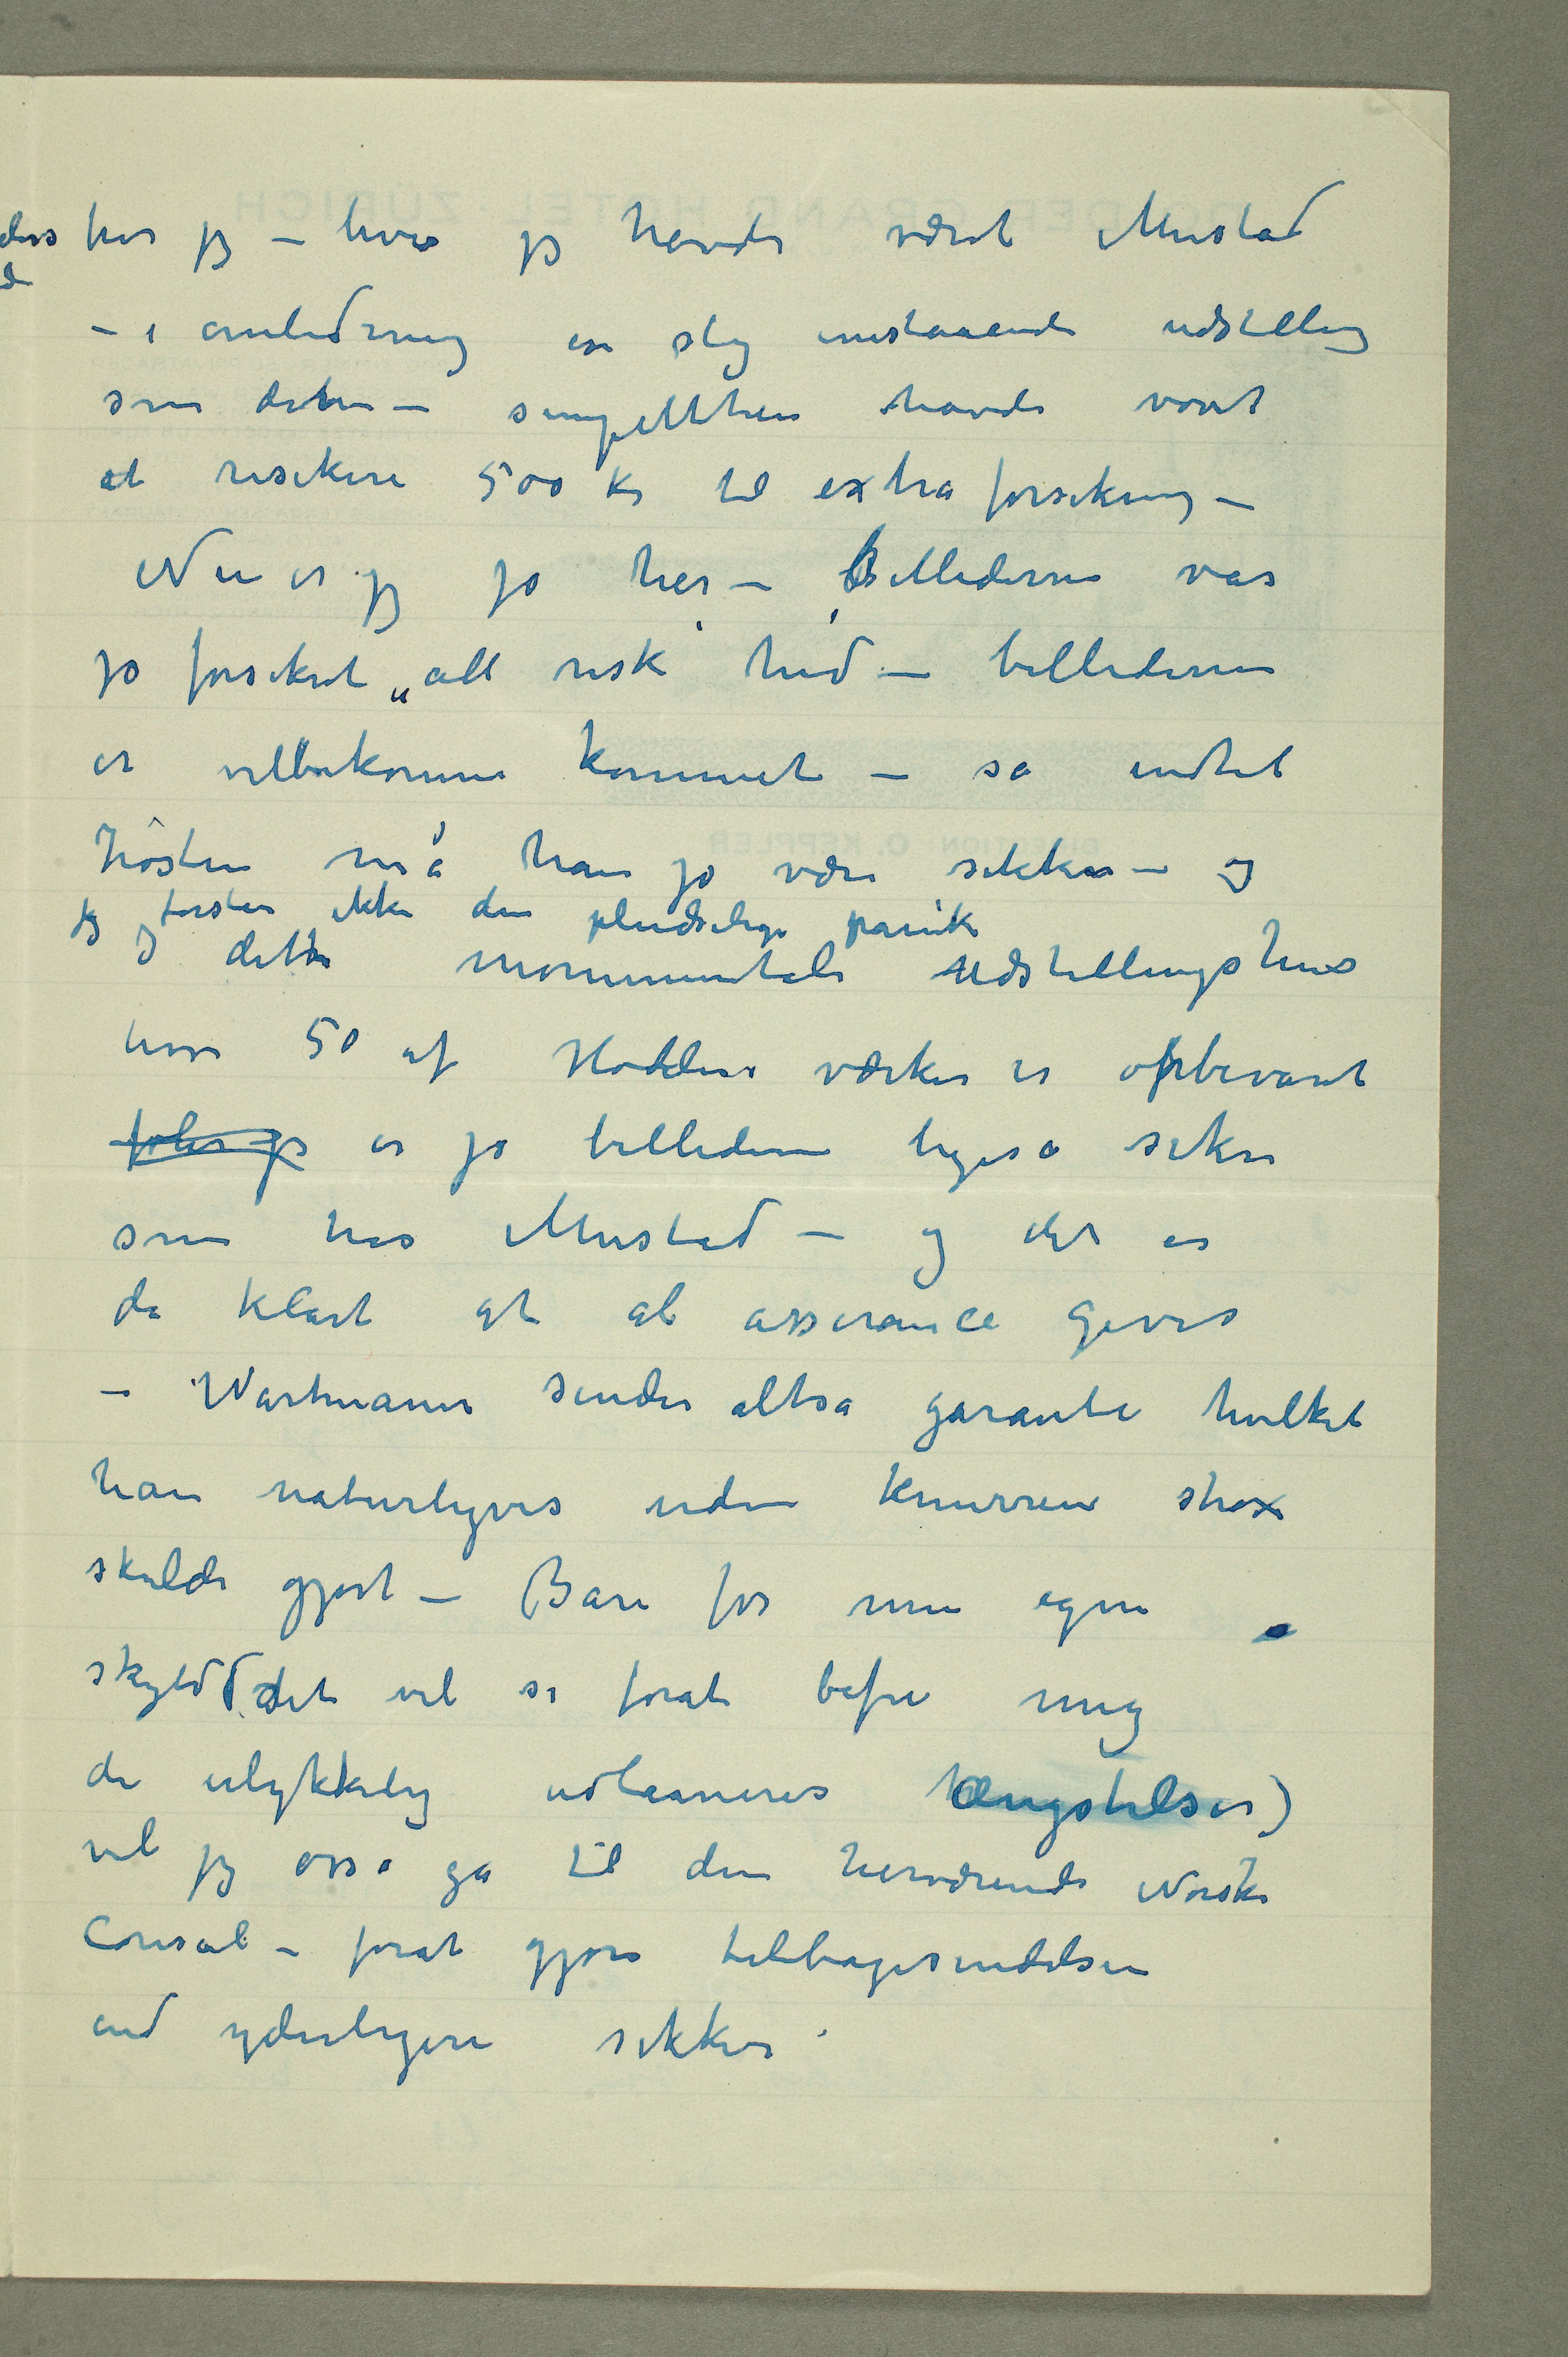 tror jeg – hvis jeg havde været Mustad
– i anledning en slig enestaaende udstilling
som denne – simpelthen havde vovet
at risikere 500 kr til extra forsikring –
Nu er jeg jo her – Billederne var
jo forsikret „all risk" hid – billederne
er velbeholdne kommet – så indtil
høsten må han jo være sikker – og
jeg forstår ikke den pludselige panik
I dette monumentale Udstillingshus
hvor 50 af Hodlers værker er opbevaret
føler jo er jo billederne ligeså sikre
som hos Mustad – og det er
da klart at al asserance gives
– Wartmann sender altså garanti hvilket
han naturligvis uden knurren strax
skulde gjort – Bare for min egen
skyld (det vil si forat befri mig
de ulykkelig udlaaneres ængstelser)
vil jeg osså gå til den herværende Norske
Consul – forat gjøre tilbagesendelsen
end yderligere sikker
GRAND HOTEL · ZÜRICH
DIRECTION: O. KEPPLER